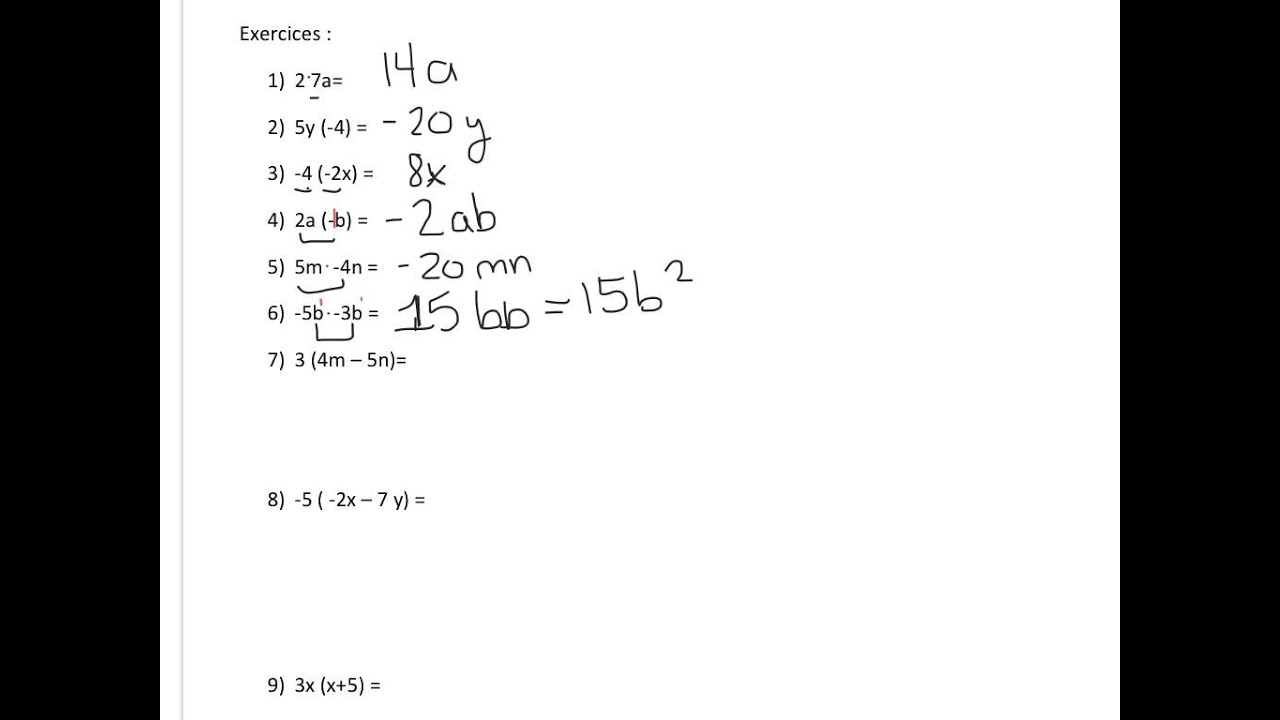 Exercices :
1) 2·7a= 14a
2) 5y (-4) = - 20 y
3) -4 (-2x) = 8x
4) 2a (-b) = - 2 ab
5) 5m · -4n = - 20 mn
6) -5b¹ · -3b¹ = 15 bb = 15b²
7) 3 (4m – 5n)=
8) -5 ( -2x – 7 y) =
9) 3x (x+5) =